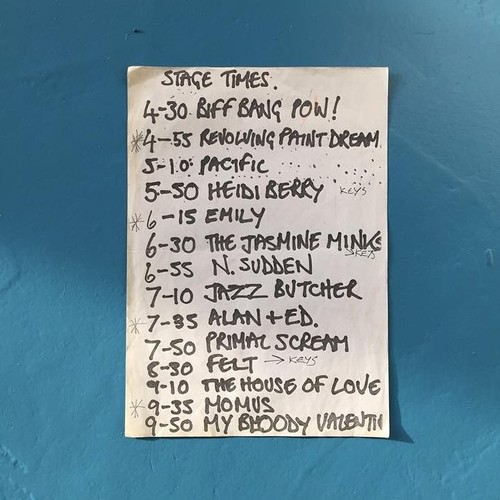 STAGE TIMES.
4-30 BIFF BANG POW!
* 4-55 REVOLVING PAINT DREAM
5-10 PACIFIC
5-50 HEIDI BERRY KEYS
* 6-15 EMILY
6-30 THE JASMINE MINKS
→KEYS
6-55 N. SUDDEN
7-10 JAZZ BUTCHER
* 7-35 ALAN + ED.
7-50 PRIMAL SCREAM
8-30 FELT → KEYS
9-10 THE HOUSE OF LOVE
* 9-35 MOMUS
9-50 MY BLOODY VALENTI